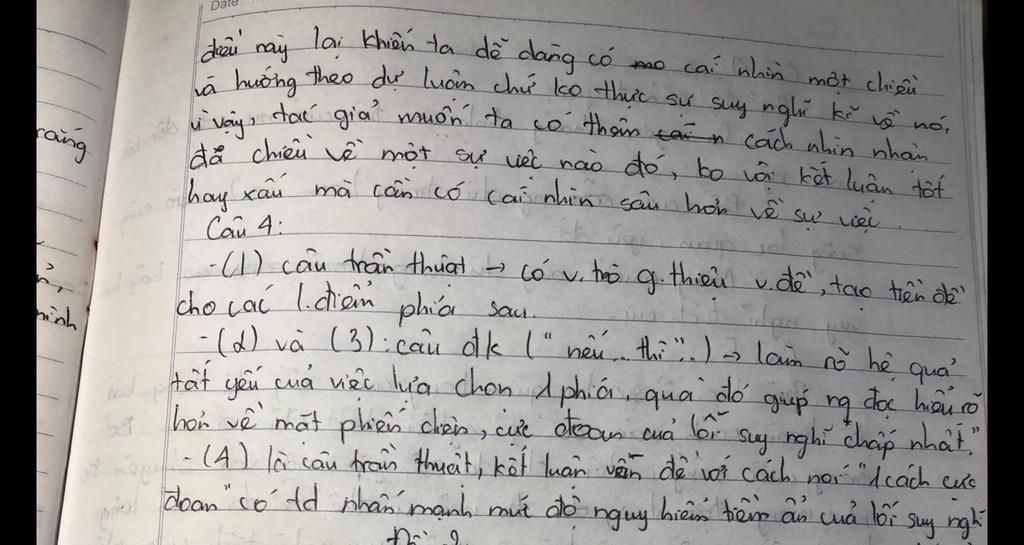 Date
điều này lại khiến ta dễ dàng có cái nhìn một chiều
và hướng theo dư luận chứ ko thực sự suy nghĩ kĩ về nó,
vì vậy, tác giả muốn ta có thêm cách nhìn nhận
đa chiều về một sự việc nào đó, ko vội kết luận tốt
hay xấu mà cần có cái nhìn sâu hơn về sự việc.
Câu 4:
-(1) câu trần thuật → có v.trò g.thiệu v.đề, tạo tiền đề
cho các l.điểm phía sau.
-(2) và (3): câu đk ("nếu.. thì"..) → làm rõ hệ quả
tất yếu của việc lựa chọn 1 phía, qua đó giúp ng đọc hiểu rõ
hơn về mặt phiến diện, cực đoan của lối suy nghĩ chấp nhất."
-(4) là câu trần thuật, kết luận vấn đề với cách nói "1 cách cực
đoan" có td nhấn mạnh mức độ nguy hiểm tiềm ẩn của lối suy nghĩ
ràng
mình